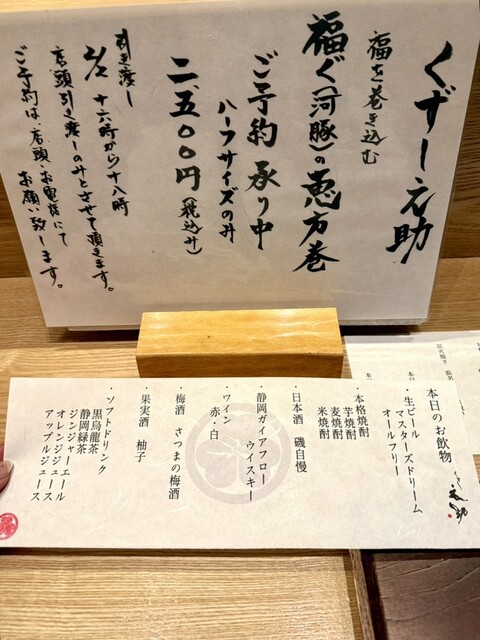 くずし之助
福を巻き込む
福ぐ(河豚)の恵方巻
ご予約承り中
ハーフサイズのみ
二、五〇〇円(税込み)
引き渡し
2/2 十六時から十八時
店頭引き渡しのみとさせて頂きます。
ご予約は、店頭、お電話にて
お願い致します。
本日のお飲物
・生ビール
マスターズドリーム
オールフリー
・本格焼酎
芋焼酎
麦焼酎
米焼酎
・日本酒 磯自慢
・静岡ガイアフロー
ウイスキー
・ワイン
赤・白
・梅酒 さつまの梅酒
・果実酒 柚子
・ソフトドリンク
黒烏龍茶
静岡緑茶
ジンジャーエール
オレンジジュース
アップルジュース